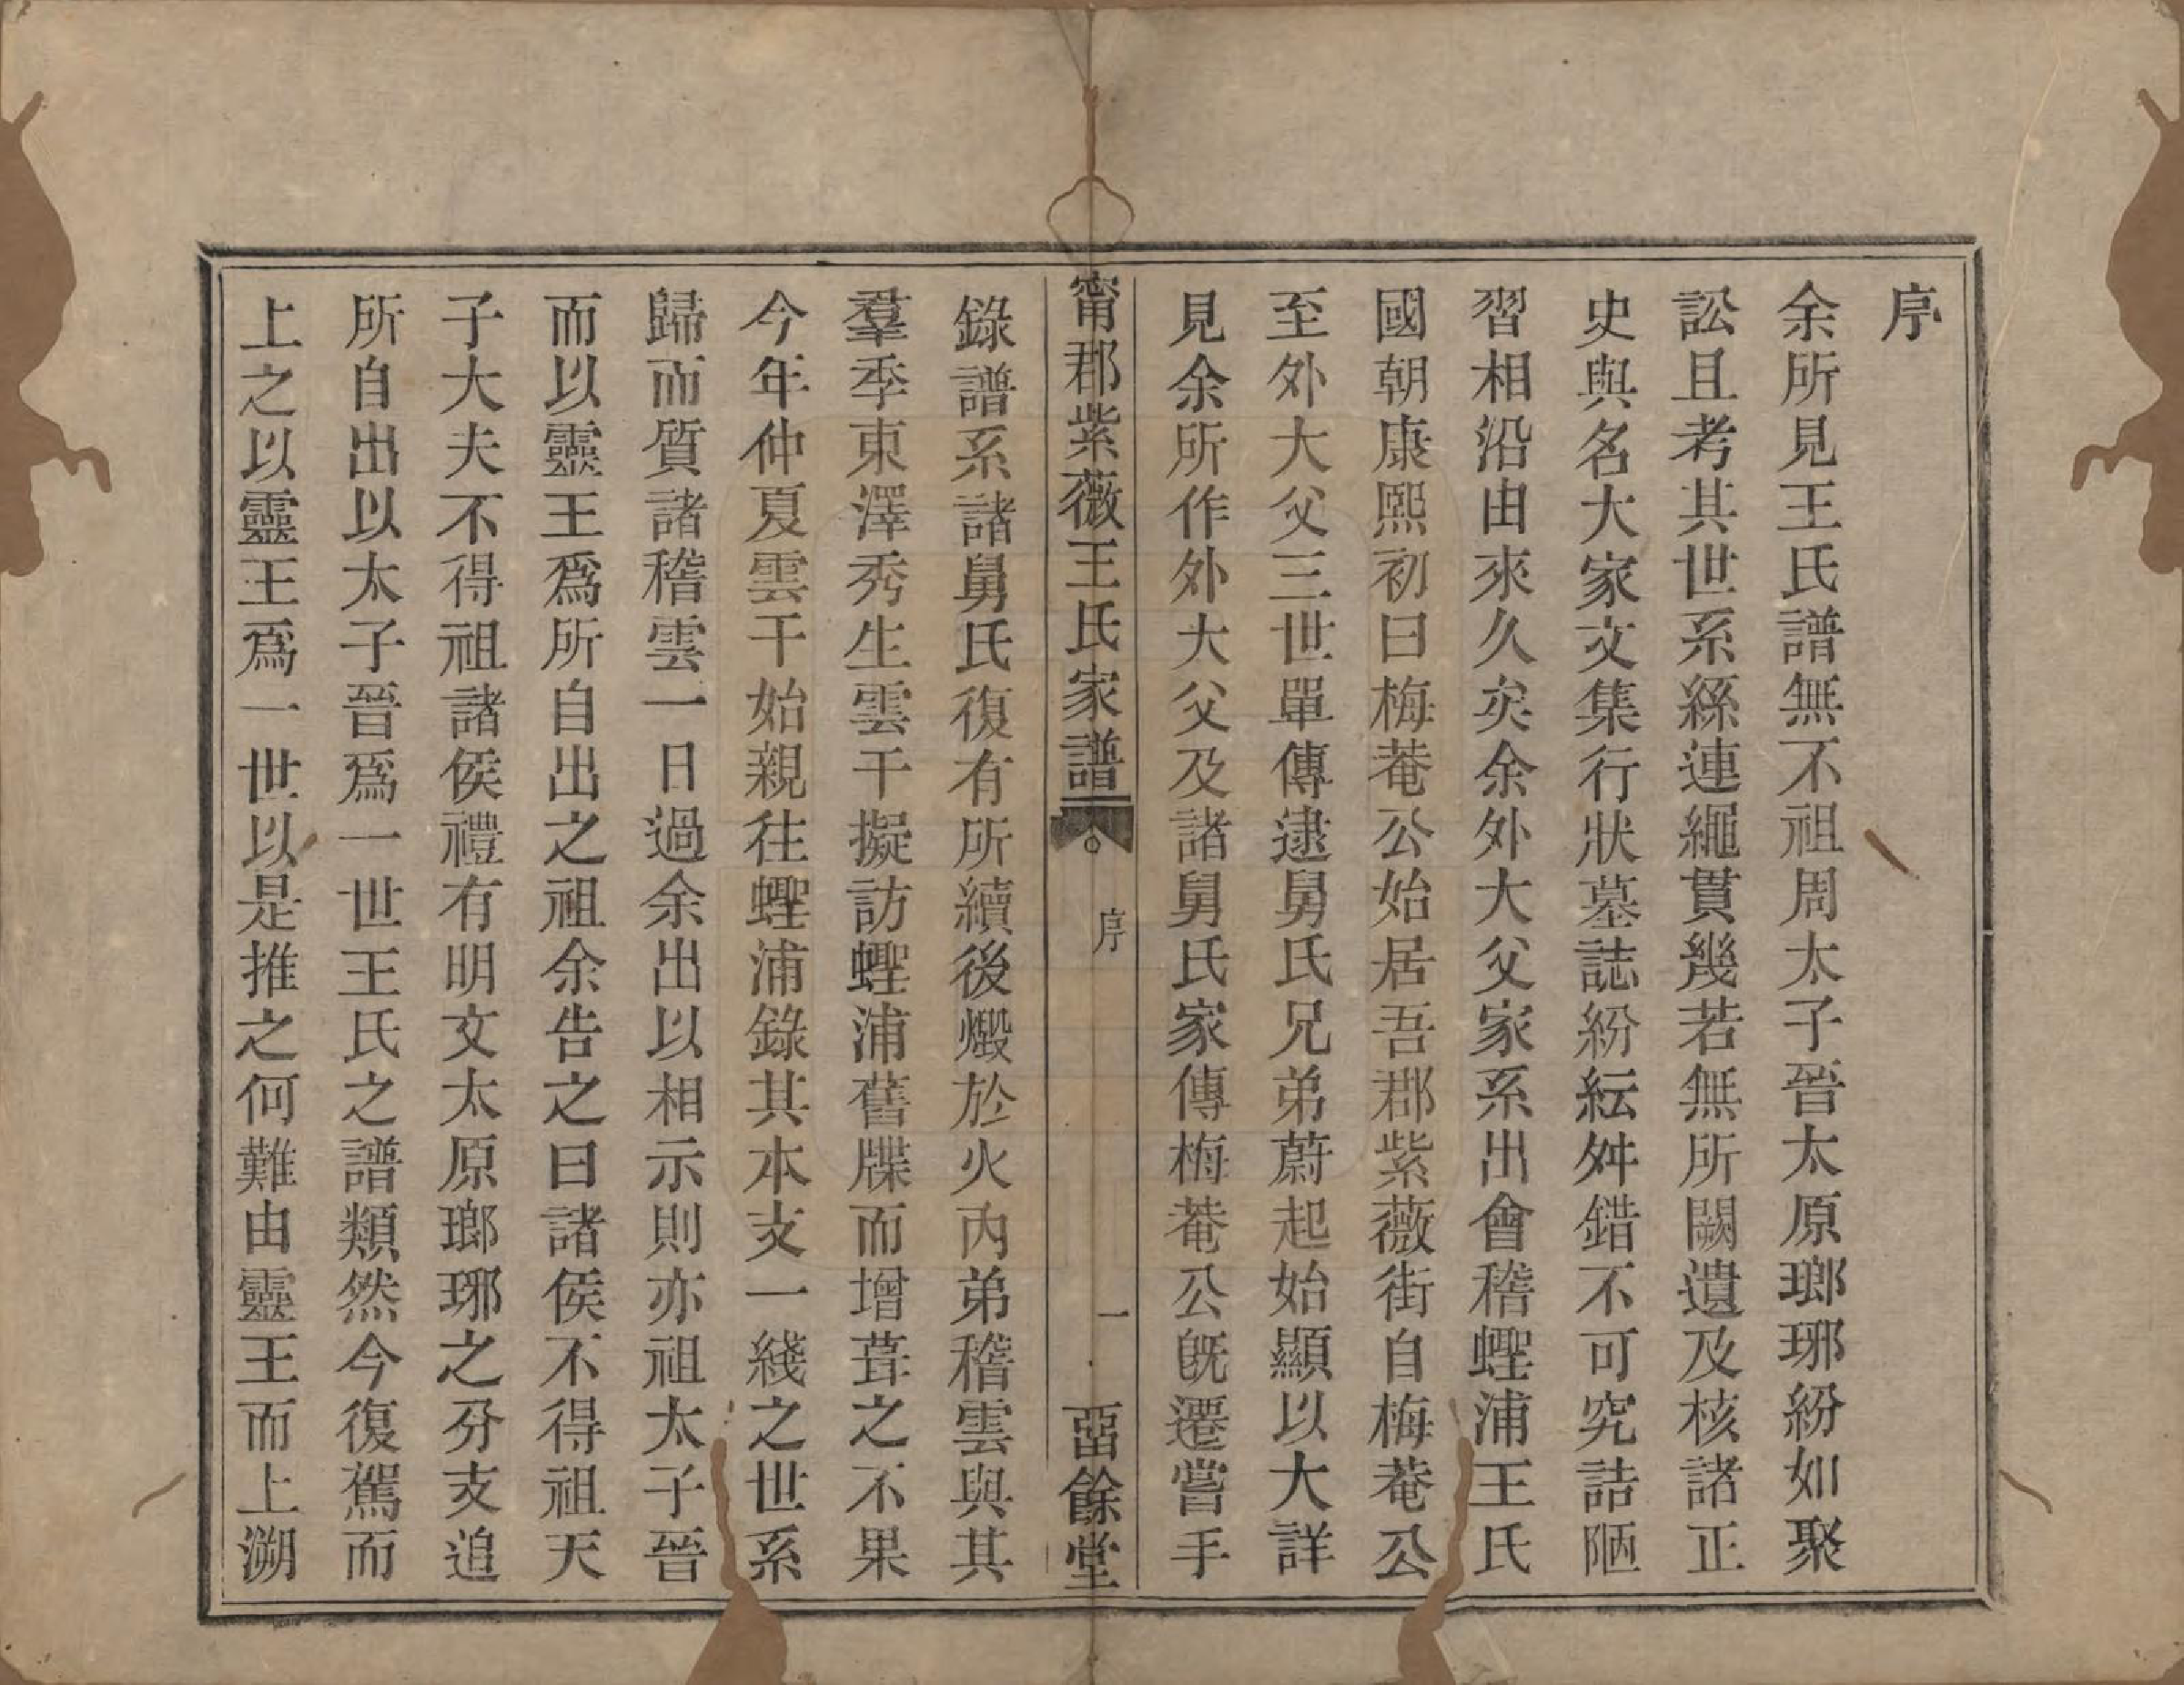 序
余所見王氏譜無不祖周太子晉太原瑯琊紛如聚
訟且考其世系絲連繩貫幾若無所闕遺及核諸正
史與名大家文集行狀墓誌紛紜舛錯不可究詰陋
習相沿由來久矣余外大父家系出會稽蟶浦王氏
國朝康熙初曰梅菴公始居吾郡紫薇街自梅菴公
至外大父三世單傳逮舅氏兄弟蔚起始顯以大詳
見余所作外大父及諸舅氏家傳梅菴公旣遷嘗手
甯郡紫薇王氏家譜
序
一
畱餘堂
錄譜系諸舅氏復有所續後燬於火內弟稽雲與其
羣季東澤秀生雲干擬訪蟶浦舊牒而增葺之不果
今年仲夏雲干始親往蟶浦錄其本支一綫之世系
歸而質諸稽雲一日過余出以相示則亦祖太子晉
而以靈王爲所自出之祖余告之曰諸侯不得祖天
子大夫不得祖諸侯禮有明文太原瑯琊之分支追
所自出以太子晉爲一世王氏之譜類然今復駕而
上之以靈王爲一世以是推之何難由靈王而上溯